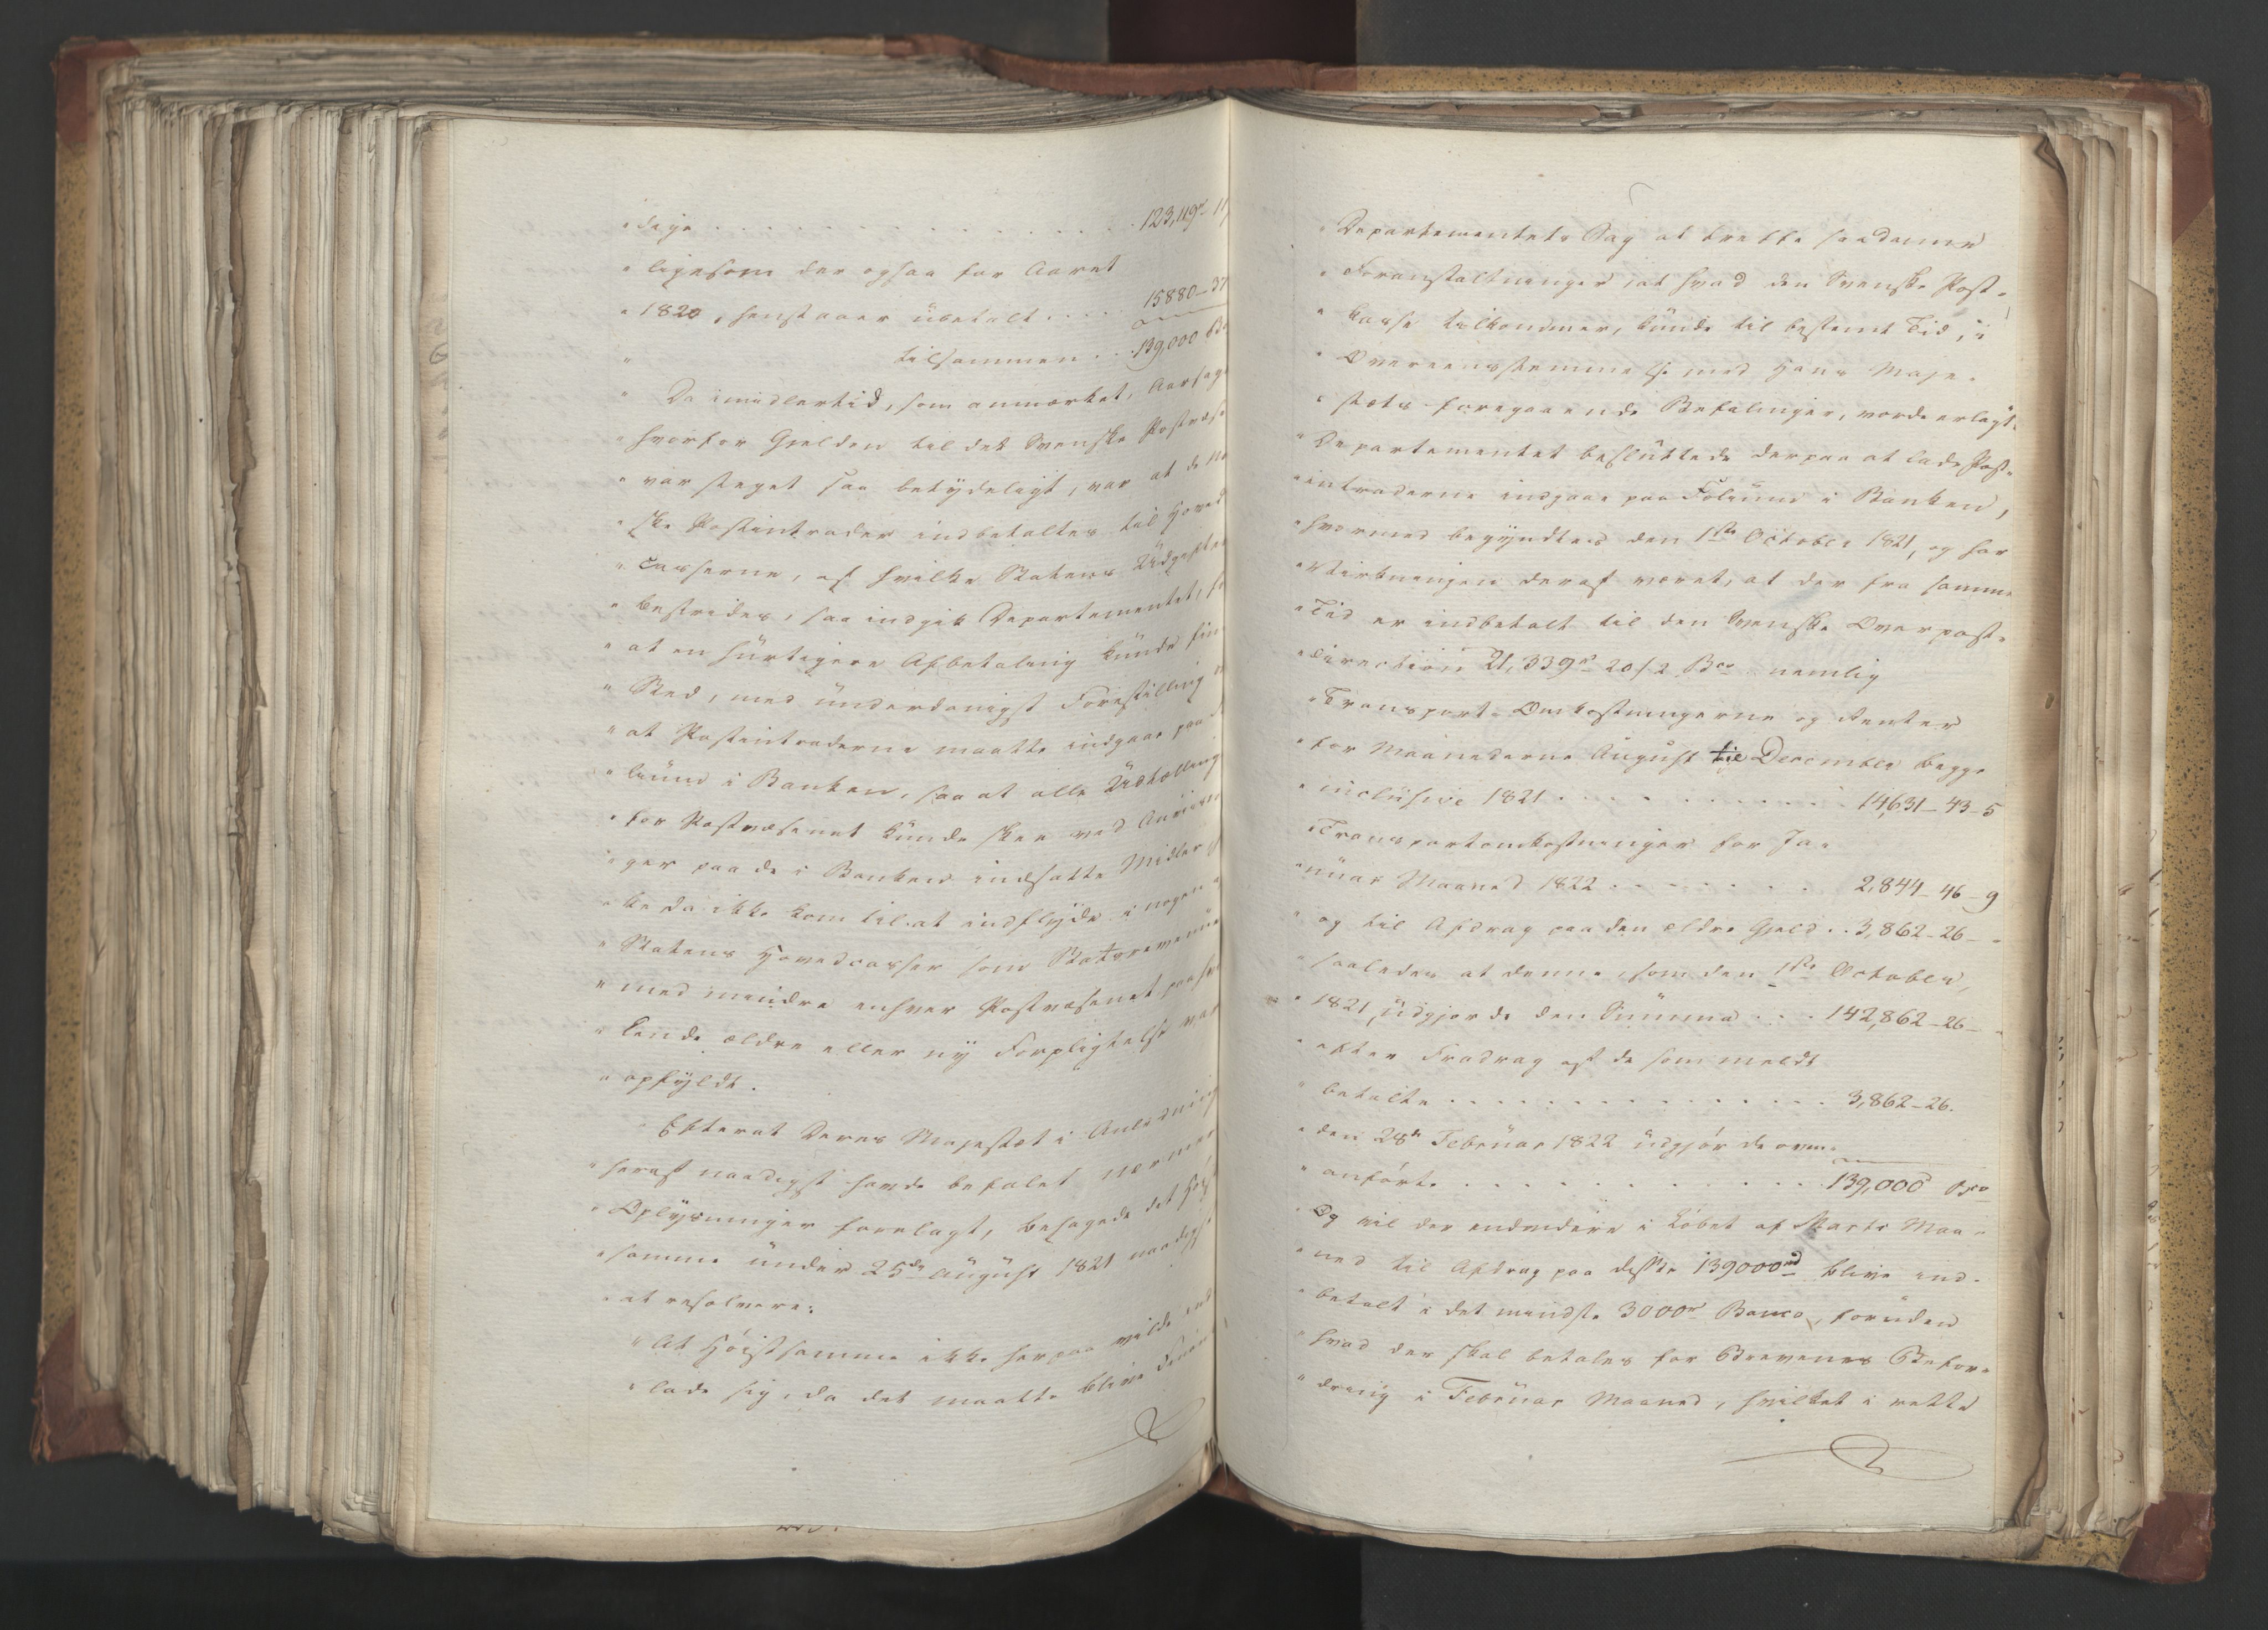 " dige . . . . . . . . . . . . . . . 123,119 rd - 11
" ligesom der ogsaa for Aaret
" 1820, henstaaer übetalt . . . . 15880 - 37
" tilsammen . . . 139,000 Bo
" Da imidlertid, som anmærket, Aarsage
" hvorfor Gjelden til det Svenske Postvæse
" var steget saa betÿdeligt, var at de No
" ske Postintrader indbetaltes til Hoved
" Casserne, af hvilke Statens Üdgifter
" bestrides, saa indgik Departementet, fo
" at en hürtigere Afbetaling künde fin
" Sted, med ünderdanigst Forestilling o
" at Postintraderne maatte indgaae paa F
" liüm i Banken, saa at alle Üdtælling
" for Postvæsenet künde skee ved Anviisn
" ger paa de i Banken indsatte Midler, h
" ke da ikke kom til at indflÿde i nogen af
" Statens Hovedcasser som Statsrevenüe
" med mindre enhver Postvæsenet paahvi
" lende ældre eller nÿ Forpligtelse var
" opfÿldt.
" Efterat Deres Majestæt i Anledning
" heraf naadigst havde befalet nærmere
" Oplÿsninger forelagt, behagede det Høist
" samme ünder 25de Aügüst 1821 naadigst
" at resolvere:
" At Høistsamme ikke herpaa vilde ind
" lade sig, da det maatte blive Finan
" Departementets Sag at træffe saadanne
" Foranstaltninger, at hvad den Svenske Post-
" kasse tilkommer, künde til bestemt Tid, i
" Overeensstemmelse med Hans Maje-
" stæts foregaaende Befalinger, vorde erlagt.
" Departementet beslüttede derpaa at lade Post-
" intraderne indgaae paa Foliüm i Banken,
" hvormed begÿndtes den 1ste October 1821, og har
" Virkningen deraf været, at der fra samme
" Tid er indbetalt til den Svenske Overpost-
" direction 21,339 rd 20 s 2 Bco nemlig
" Transport-Omkostningerne og Renter
" for Maanederne Aügüst til December begge
" inclüsive 1821 . . . . . . . . . . . 14,631 - 43 - 5
" Transportomkostninger for Ja-
" nüar Maaned 1822 . . . . . . . 2,844 - 46 - 9
" og til Afdrag paa den ældre Gjeld . . 3,862 - 26 - "
" saaledes at denne, som den 1ste October,
" 1821, üdgjorde den Sümma . . . 142,862 - 26 - "
" efter Fradrag af de som meldt
" betalte . . . . . . . . . . . . . . 3,862 - 26.
" den 28de Febrüar 1822 üdgjør de oven-
" anførte . . . . . . . . . . . . . 139,000 Bco
" Og vil der endvidere i Løbet af Marts Maa-
" ned til Afdrag paa disse 139000 rd blive ind-
" betalt i det mindste 3000 rd Banco, forüden
" hvad der skal betales for Brevenes Befor-
" dring i Febrüar Maaned, hvilket i rette